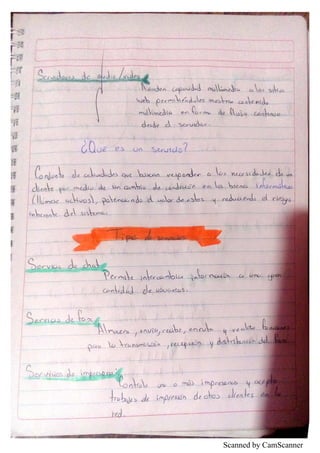 Servidores de audio/video
Añaden capacidad multimedia a los sitios
web permitiéndoles mostrar contenido
multimedia en forma de flujo continuo
desde el servidor.
¿Que es un servicio?
Conjunto de actividades que buscan responder a las necesidades de un
cliente por medio de un cambio de condición en los bienes informáticos
(llámese activos), potenciando el valor de estos y reduciendo el riesgo
inherente del sistema.
Tipos de servicios
Servicios de chat
Permite intercambiar información a una gran
cantidad de usuarios.
Servicio de fax
Almacena, envía, recibe, enruta y realiza funciones
para la transmisión, recepción y distribución del fax.
Servicios de impresión
Controla una o más impresoras y acepta
trabajos de impresión de otros clientes en la
red.
Scanned by CamScanner